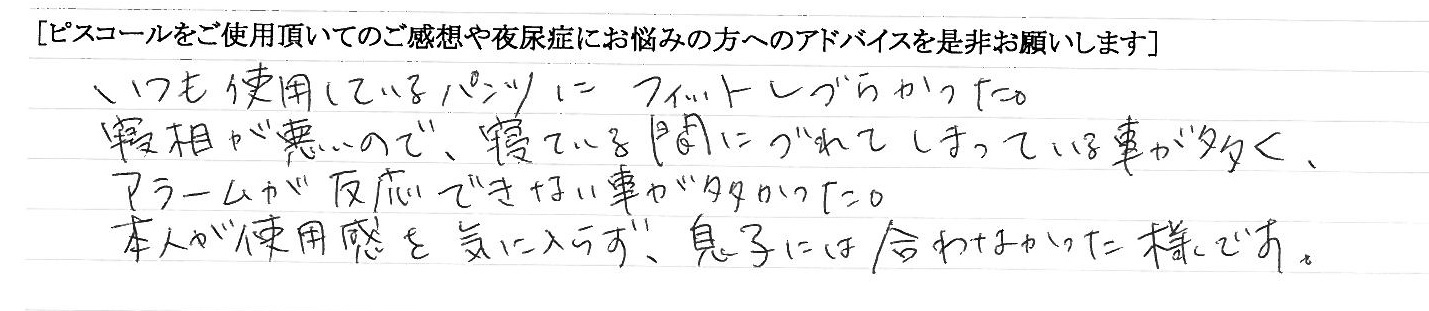 [ピスコールをご使用頂いてのご感想や夜尿症にお悩みの方へのアドバイスを是非お願いします]
いつも使用しているパンツにフィットしづらかった。
寝相が悪いので、寝ている間にづれてしまっている事が多く、
アラームが反応できない事が多かった。
本人が使用感を気に入らず、息子には合わなかった様です。